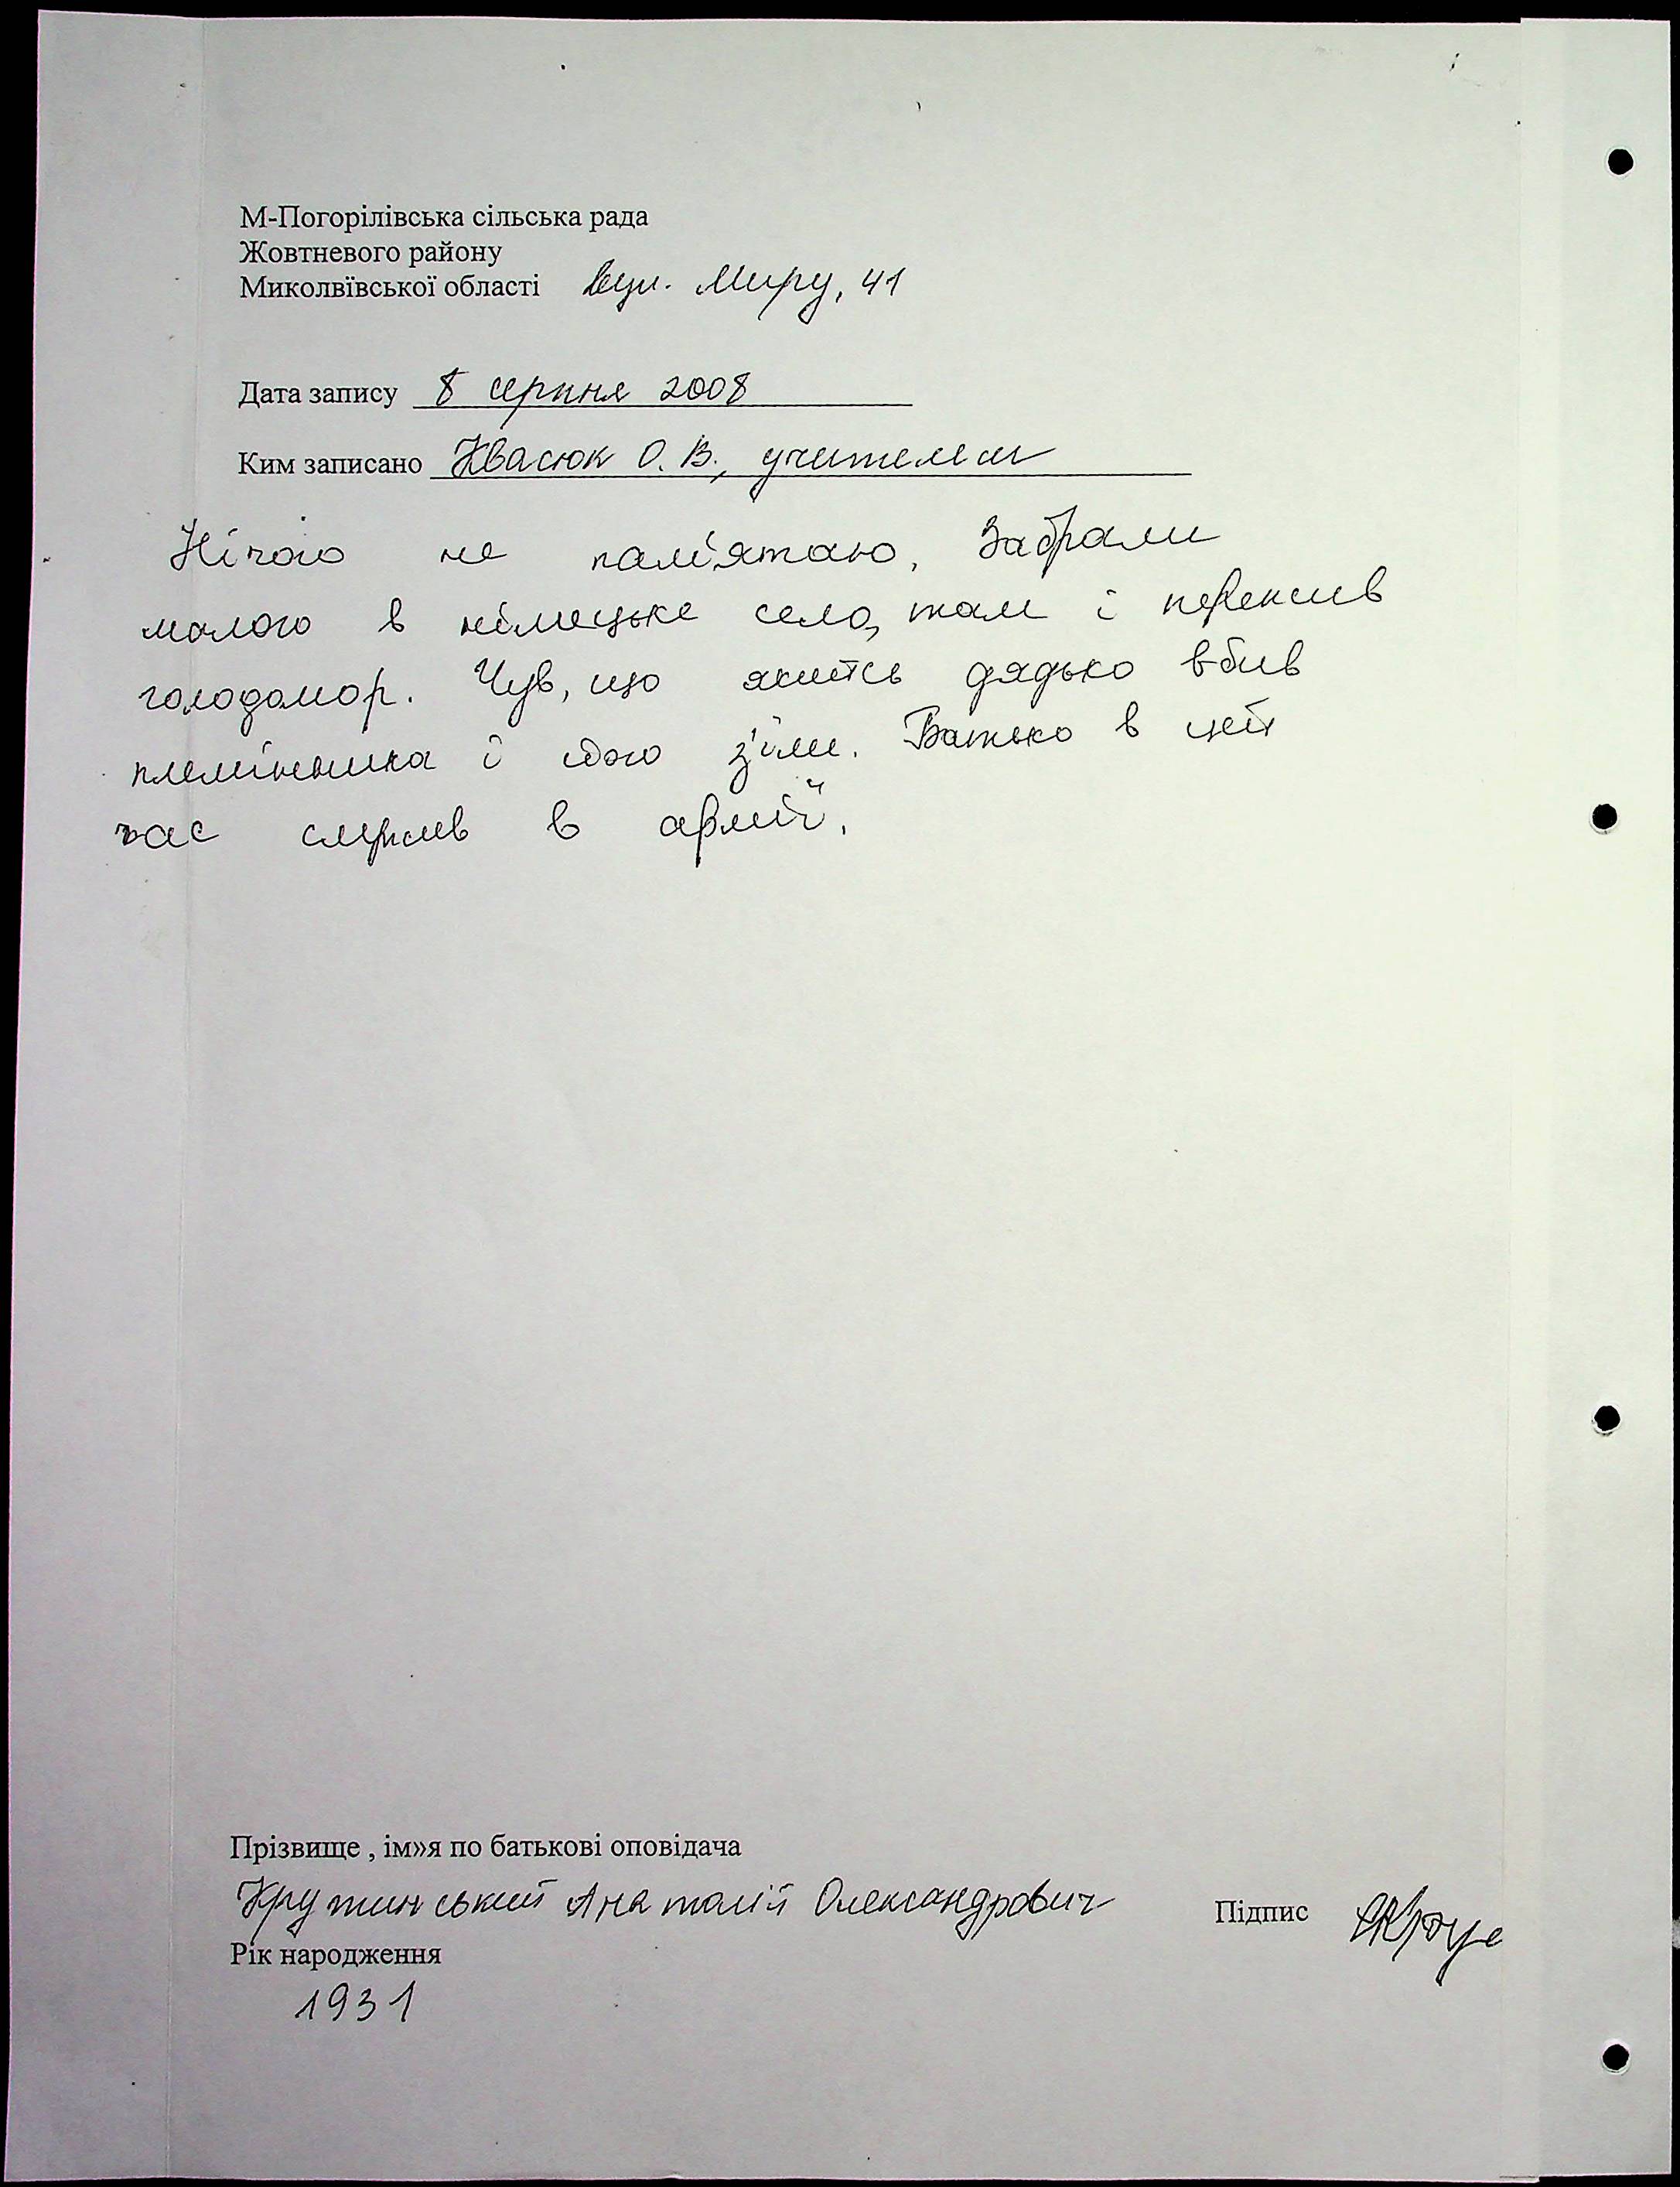 М-Погорілівська сільська рада
Жовтневого району
Миколвївської області вул. Миру, 41
Дата запису 8 серпня 2008
Ким записано Квасюк О. В., учителем
Нічого не пам'ятаю. Забрали
малого в німецьке село, там і пережив
голодомор. Чув, що якийсь дядько вбив
племінника і його з'їли. Батько в цей
час служив в армії.
Прізвище , ім»я по батькові оповідача
Крутинський Анатолій Олександрович Підпис
Рік народження
1931